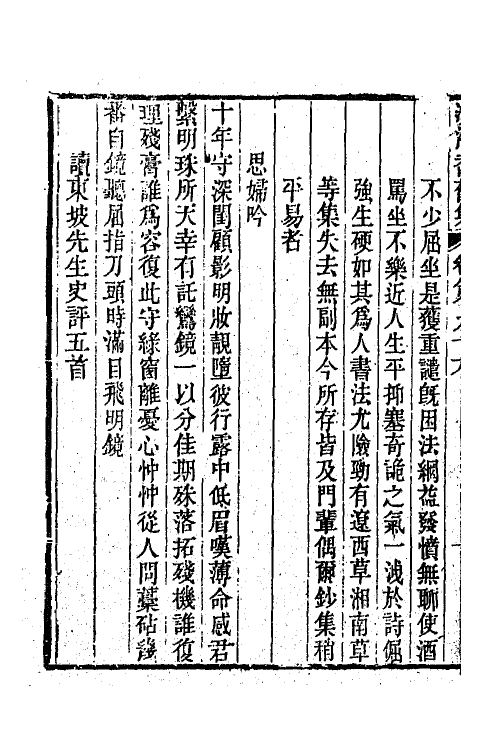 不少屈坐是獲重譴既困法網益發憤無聊使酒
罵坐不樂近人生平抑塞奇詭之氣一洩於詩倔
強生硬如其為人書法尤險勁有遼西草湘南草
等集失去無副本今所存皆及門輩偶爾鈔集稍
平易者
思婦吟
十年守深閨顧影明妝靚墮彼行露中低眉嘆薄命感君
繫明珠所天幸有託鸞鏡一以分佳期殊落拓殘機誰復
理殘膏誰為容復此守綠窗離憂心忡忡從人問藁砧
番自鏡聽屈指刀頭時滿目飛明鏡
讀東坡先生史評五首